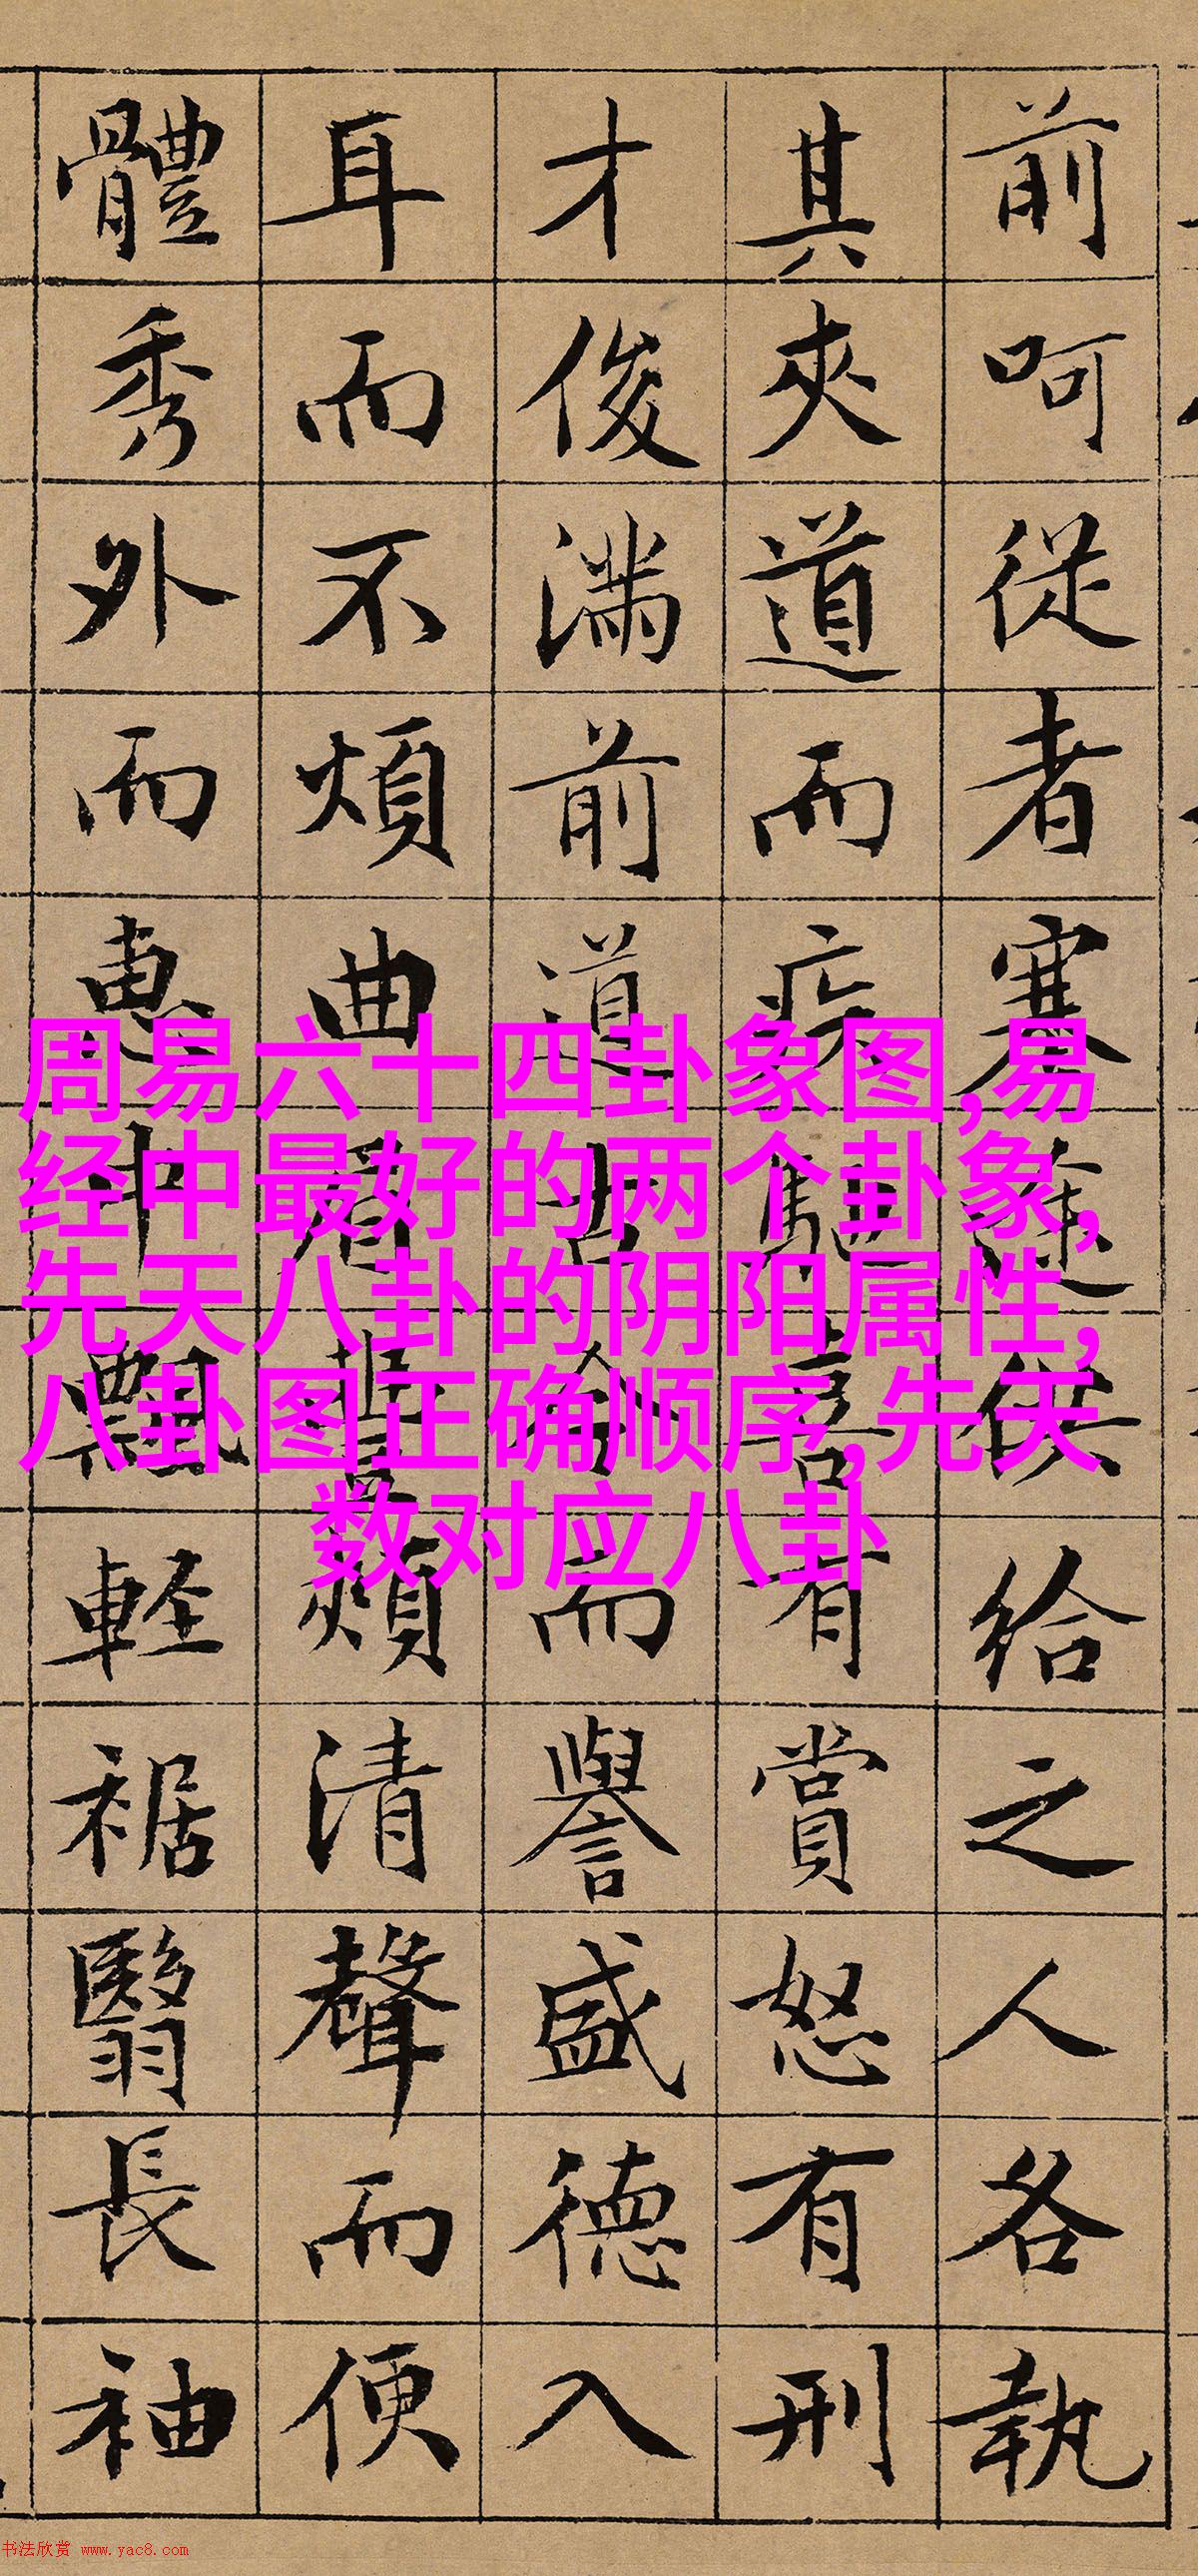 前呵從者塞途供給之人各執
其夾道而疾喜有賞怒有刑
才俊滿前道古今而譽盛德入
耳而不煩曲眉豐頰清聲而便
體秀外而惠中飄軽裾翳長袖
周易六十四卦象图,易
经中最好的两个卦象,
先天八卦的阴阳属性,
八卦图正确顺序,先天
数对应八卦
书法欣赏 www.yac8.com